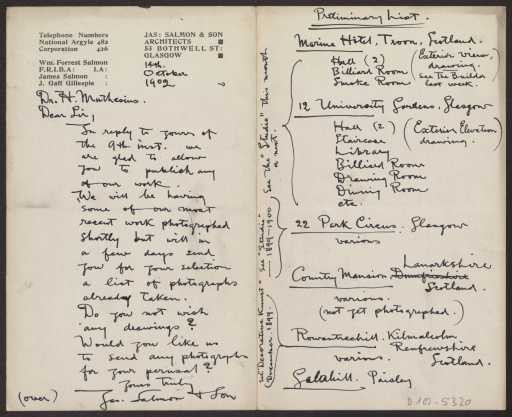 Telephone Numbers
National Argyle 482
Corporation 426
Wm. Forrest Salmon
F.R.I.B.A: I.A:
James Salmon:
J. Gaff Gillespie:
JAS: SALMON & SON
ARCHITECTS
53 BOTHWELL ST:
GLASGOW
14th.
October
1902
Dr. H. Muthesius.
Dear Sir,
In reply to yours of
the 9th inst. we
are glad to allow
you to publish any
of our work.
We will be having
some of our most
recent work photographed
shortly but will in
a few days send
you for your selection
a list of photographs
already taken.
Do you not wish
any drawings?
Would you like us
to send any photographs
for your perusal?
Yours truly
(over) Jas. Salmon & Son
Preliminary List.
Marine Hotel, Troon, Scotland.
Hall (2)
Billiard Room
Smoke Room
(Exterior view,
drawing.
See The Builder
last week.
12 University Gardens, Glasgow
Hall (2)
Staircase
Library
Billiard Room
Drawing Room
Dining Room
etc.
(Exterior Elevation
drawing.)
22 Park Circus. Glasgow
various
Country Mansion, Dumfriesshire Lanarkshire
Scotland.
various.
(not yet photographed.)
Rowantreehill. Kilmalcolm.
Renfrewshire
various. Scotland.
Galahill. Paisley
See the "Studio" this month
& next.
See "Studio"
1899-1900
"Decorative Kunst"
December 1899.
D 102-5320